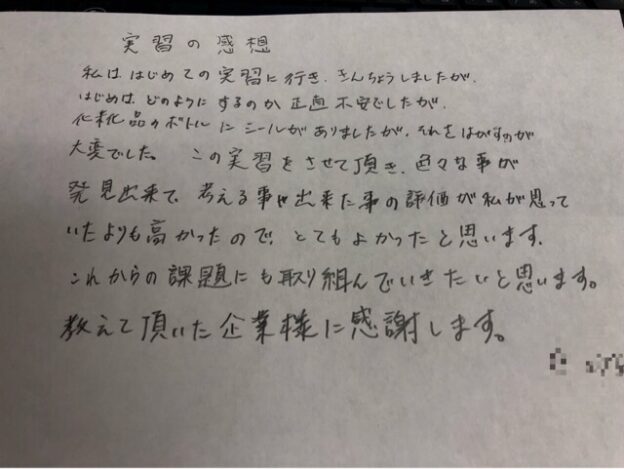 実習の感想
私は はじめての実習に行き、きんちょうしましたが、
はじめは、どのように するのか 正直 不安でしたが、
化粧品のボトルに シールがありましたが、それをはがすのが
大変でした。 この実習をさせて頂き、色々な事が
発見出来て、考える事や出来た事の評価が私が思って
いたよりも高かったので、とてもよかったと思います。
これからの課題にも取り組んでいきたいと思います。
教えて頂いた企業様に感謝します。